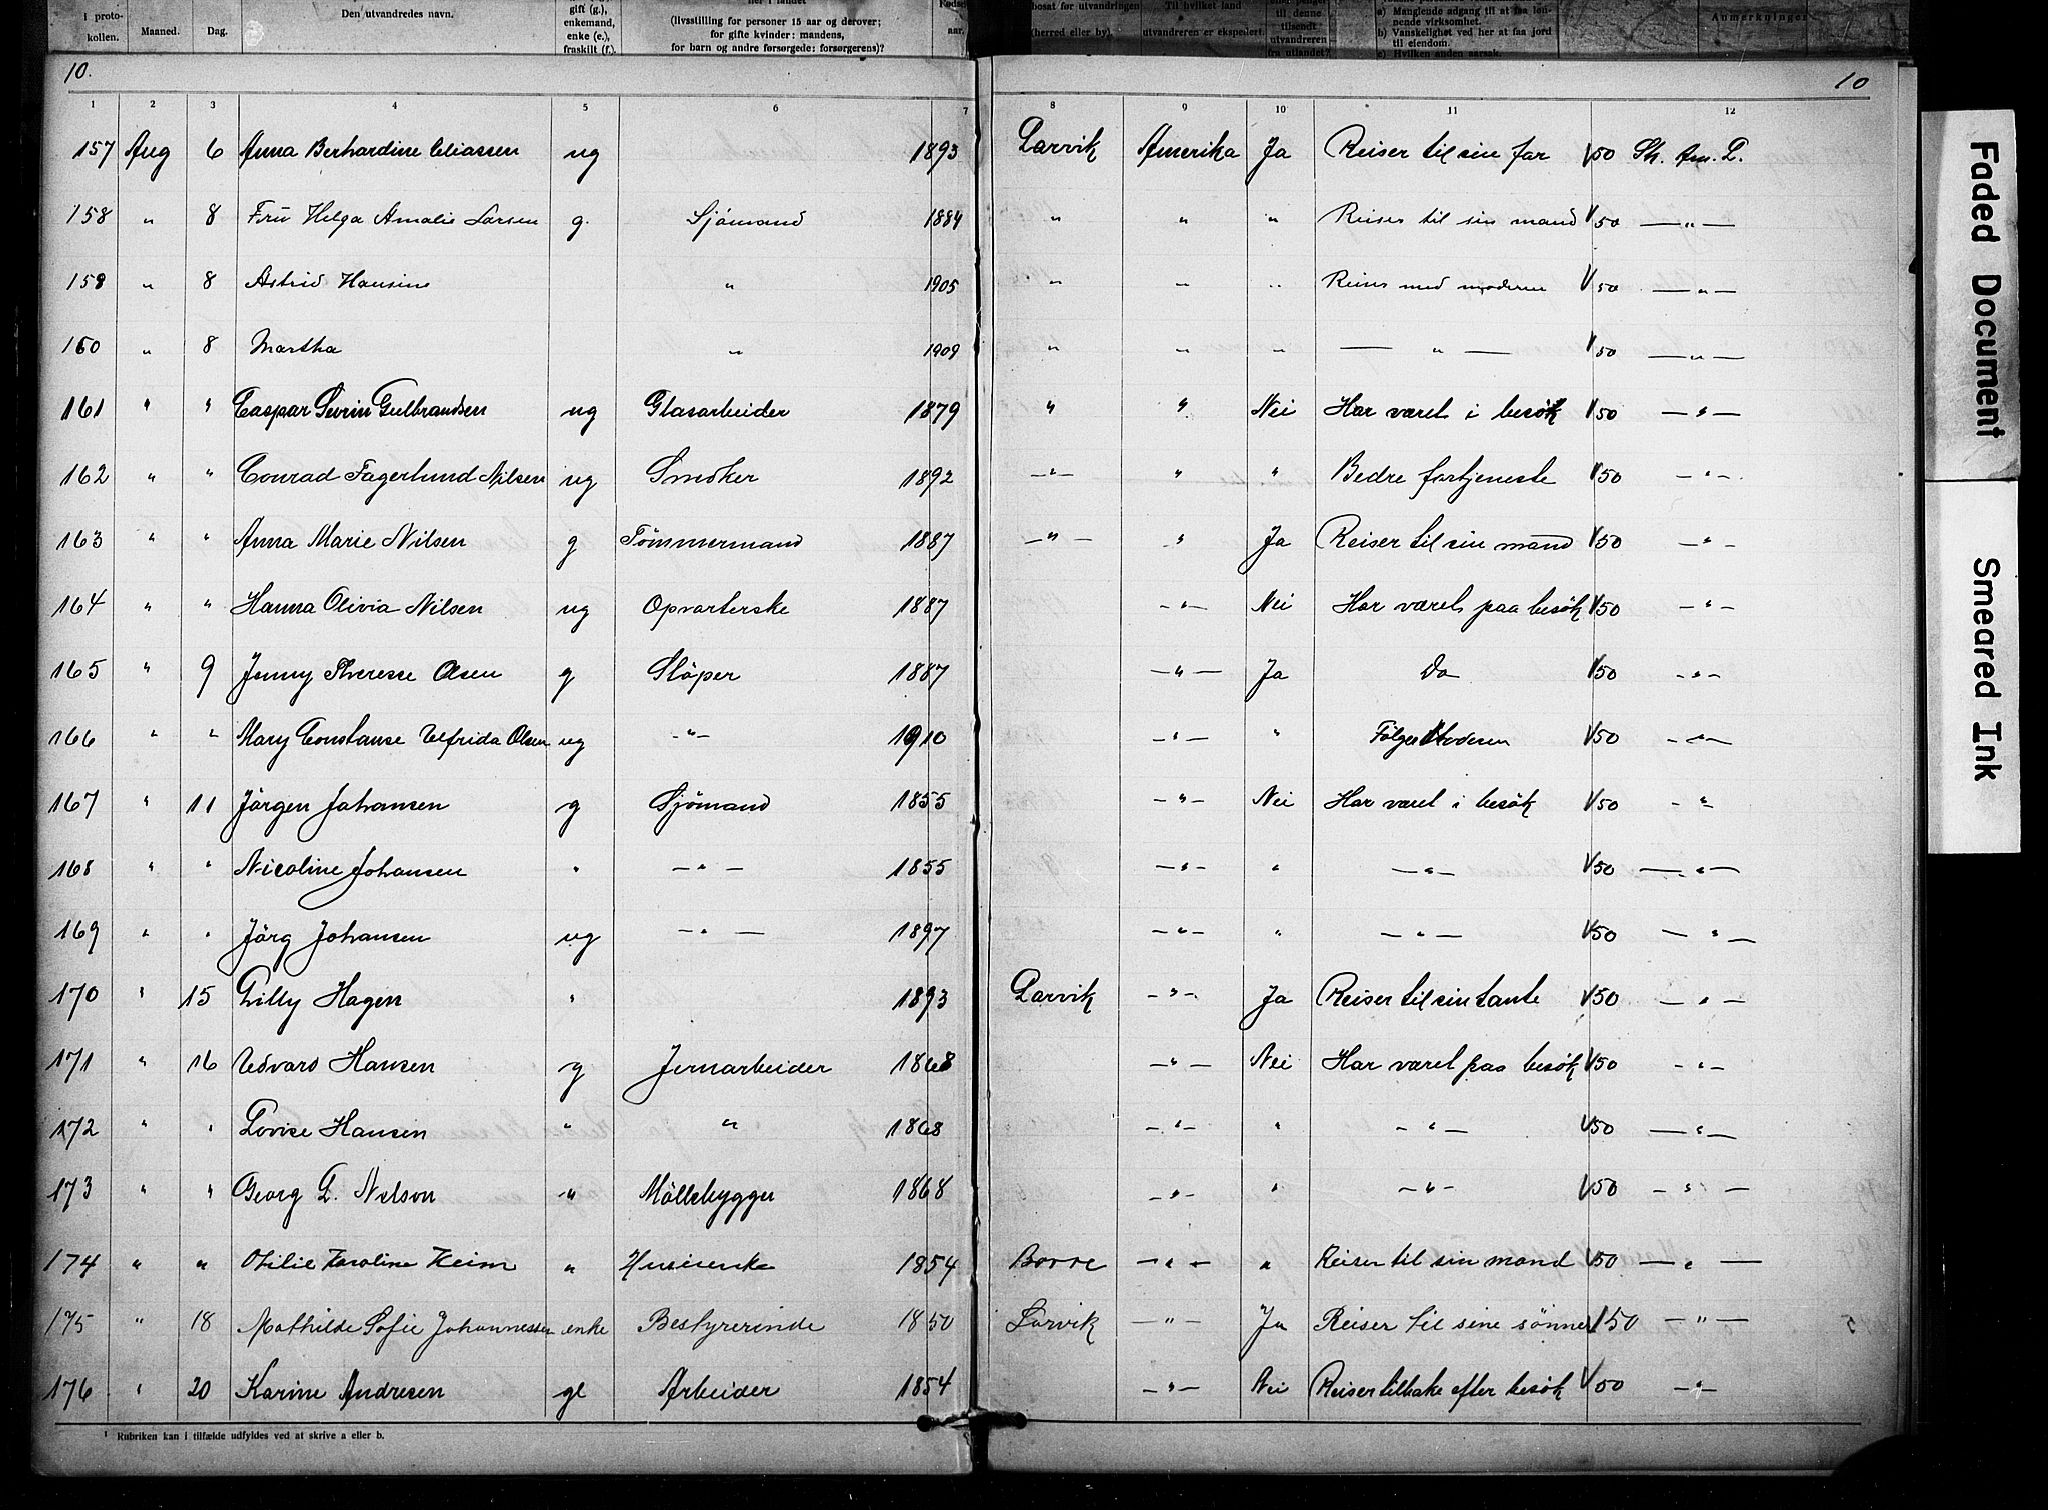 I proto-
kollen. Maaned. Dag. Den utvandredes navn. gift (g.),
enkemand,
enke (e.),
fraskilt (f.). her i landet
(livsstilling for personer 15 aar og derover;
for gifte kvinder: mandens,
for barn og andre forsørgede: forsørgerens)? Fødse
aar. bosat før utvandringen
(herred eller by). Til hvilket land
utvandreren er ekspedert. til denne
tilsendt
utvandreren
fra utlandet? a) Manglende adgang til at faa løn-
nende virksomhet.
b) Vanskelighet ved her at faa jord
til eiendom.
c) Hvilken anden aarsak. Anmerkninger
10. 10
1 2 3 4 5 6 7 8 9 10 11 12
157 Aug 6 Anna Berhardine Eliassen ug 1893 Larvik Amerika Ja Reiser til sin far 1/50 Sk. Am. L.
158 " 8 Fru Helga Amalie Larsen g. Sjömand 1884 " " " Reiser til sin mand 1/50 — " —
159 " 8 Astrid Hansine " 1905 " " " Reiser med moderen 1/50 — " —
160 " 8 Martha " 1909 " " " — " — 1/50 — " —
161 " " Caspar Sevrin Gulbrandsen ug Glasarbeider 1879 " " Nei Har været i besök 1/50 — " —
162 " " Conrad Fagerlund Nilsen ug Snedker 1892 — " — " " Bedre fortjeneste 1/50 — " —
163 " " Anna Marie Nilsen g Tömmermand 1887 — " — " Ja Reiser til sin mand 1/50 — " —
164 " " Hanna Olivia Nilsen ug Opvarterske 1887 — " — Nei Har været paa besök 1/50 — " —
165 " 9 Jenny Therese Olsen g Stöper 1887 — " — Ja Do 1/50 — " —
166 " " Mary Constanse Elfrida Olsen ug — " — 1910 — " — " Følger Moderen 1/50 — " —
167 " 11 Jörgen Johansen g Sjömand 1855 — " — Nei Har været i besök 1/50 — " —
168 " " Nicoline Johansen " — " — 1855 — " — " — " — 1/50 — " —
169 " " Jörg Johansen ug — " — 1897 — " — " — " — 1/50 — " —
170 " 15 Lilly Hagen " 1893 Larvik — " — Ja Reiser til sin tante 1/50 — " —
171 " 16 Edvard Hansen g Jernarbeider 1868 — " — Nei Har været paa besök 1/50 — " —
172 " " Lovise Hansen " " 1868 — " — " — " — 1/50 — " —
173 " " Georg L. Nelson " Möllebygger 1868 — " — " — " — 1/50 — " —
174 " " Otilie Karoline Heim " 1854 Borre — " — " Reiser til sin mand 1/50 — " —
175 " 18 Mathilde Sofie Johannessen enke Bestyrerinde 1850 Larvik — " — Ja Reiser til sine sönner 1/50 — " —
176 " 20 Karine Andresen gl Arbeider 1854 — " — Nei Reiser tilbake efter besök 1/50 — " —
¹ Rubriken kan i tilfælde udfyldes ved at skrive a eller b.
Faded Document
Smeared Ink